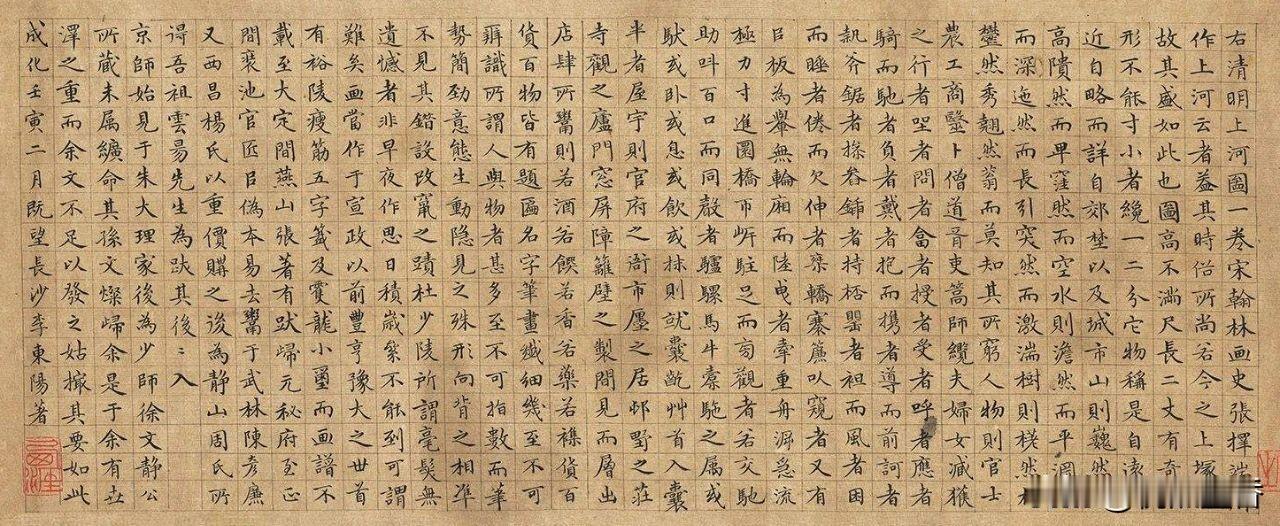 右清明上河圖一卷宋翰林画史張擇端
作上河云者蓋其時俗所尚若今之上塚
故其盛如此也圖高不滿尺長二丈有奇
形不能寸小者纔一二分它物稱是自遠
近自略而詳自郊埜以及城市山則巍然
高隤然而卑窪然而空水則澹然而平淵
而深迤然而長引突然而激湍樹則槎然
鬱然秀翹然蓊而莫知其所窮人物則官士
農工商醫卜僧道胥吏篙師纜夫婦女臧獲
之行者坐者問者會者授者受者呼者應者
騎而馳者負者戴者抱而携者導而前訶者
執斧鋸者操畚鍤者持桮罌者袒而風者困
而睡者倦而欠伸者乗轎褰簾以窺者又有
㠯板為轝無輪廂而陸曳者牽重舟泝急流
極力寸進圜橋帀岓駐足而旁觀者若交馳
助叫百口而同聲者驢騾馬牛橐駞之属或
馱或卧或息或飲或秣則就囊齕艸首入囊
半者屋宇則官府之衙市廛之居邨野之莊
寺觀之廬門窓屏障籬壁之製間見而層出
店肆所鬻則若酒若饌若香若藥若襍貨百
貨百物皆有題匾名字筆畫纖细幾至不可
辨識所謂人與物者甚多至不可指數而筆
勢簡劲意態生動隐見之殊形向背之相凖
不見其錯設改竄之蹟杜少陵所謂毫髮無
遺憾者非早夜作思日積嵗絫不能到可謂
難矣画當作于宣政以前豐亨豫大之世首
有裕陵瘦筋五字籖及䨇龍小璽而画譜不
載至大定間燕山張著有跋歸元秘府至正
間裴池官匠㠯偽本易去鬻于武林陳彥廉
又西昌楊氏以重價購之後為靜山周氏所
得吾祖雲昜先生為跋其後ミ入
京師始見于朱大理家後為少師徐文靜公
所藏未属纊命其孫文燦歸余是于余有世
澤之重而余文不足以發之姑撮其要如此
成化壬寅二月既望長沙李東陽著